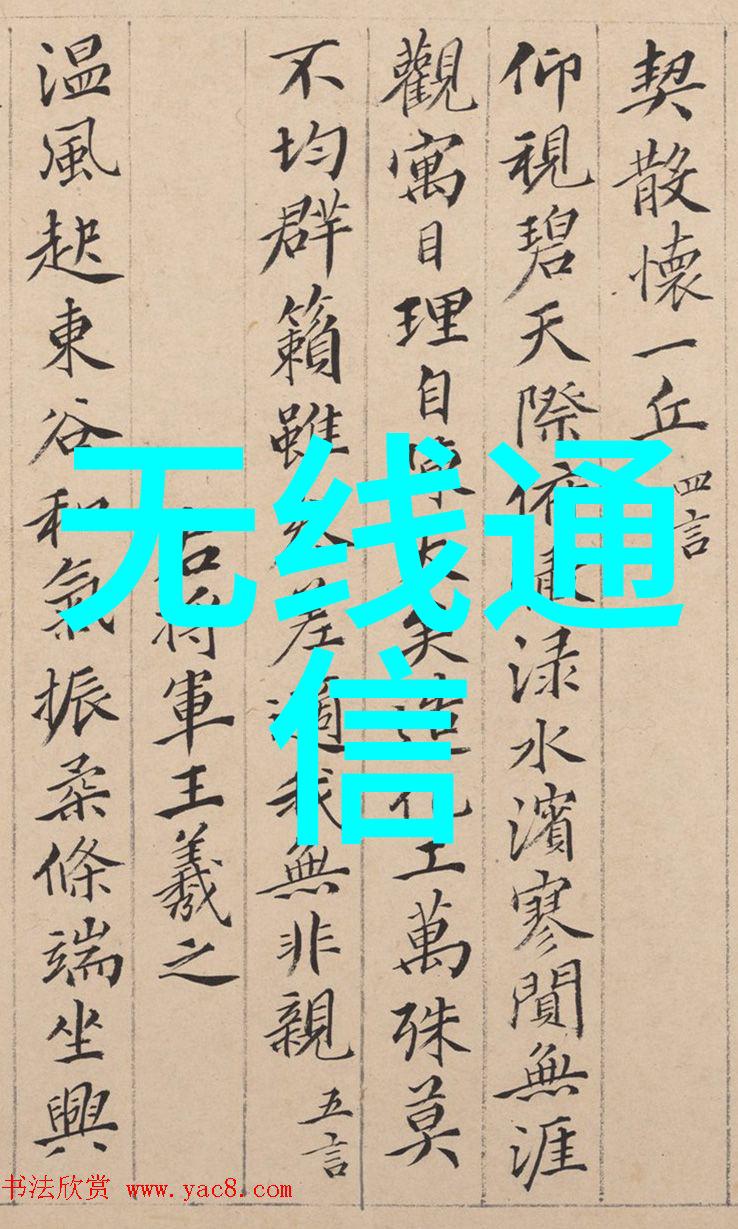 契散懷一丘 四言
仰視碧天際俯淥水濱寥閴無涯
觀寓目理自陳大矣造化工萬殊莫
不均群籟雖參差適我無非親 五言
右將軍王羲之
温風起東谷和氣振柔條端坐興
无线通
信
书法欣赏 www.yac8.com